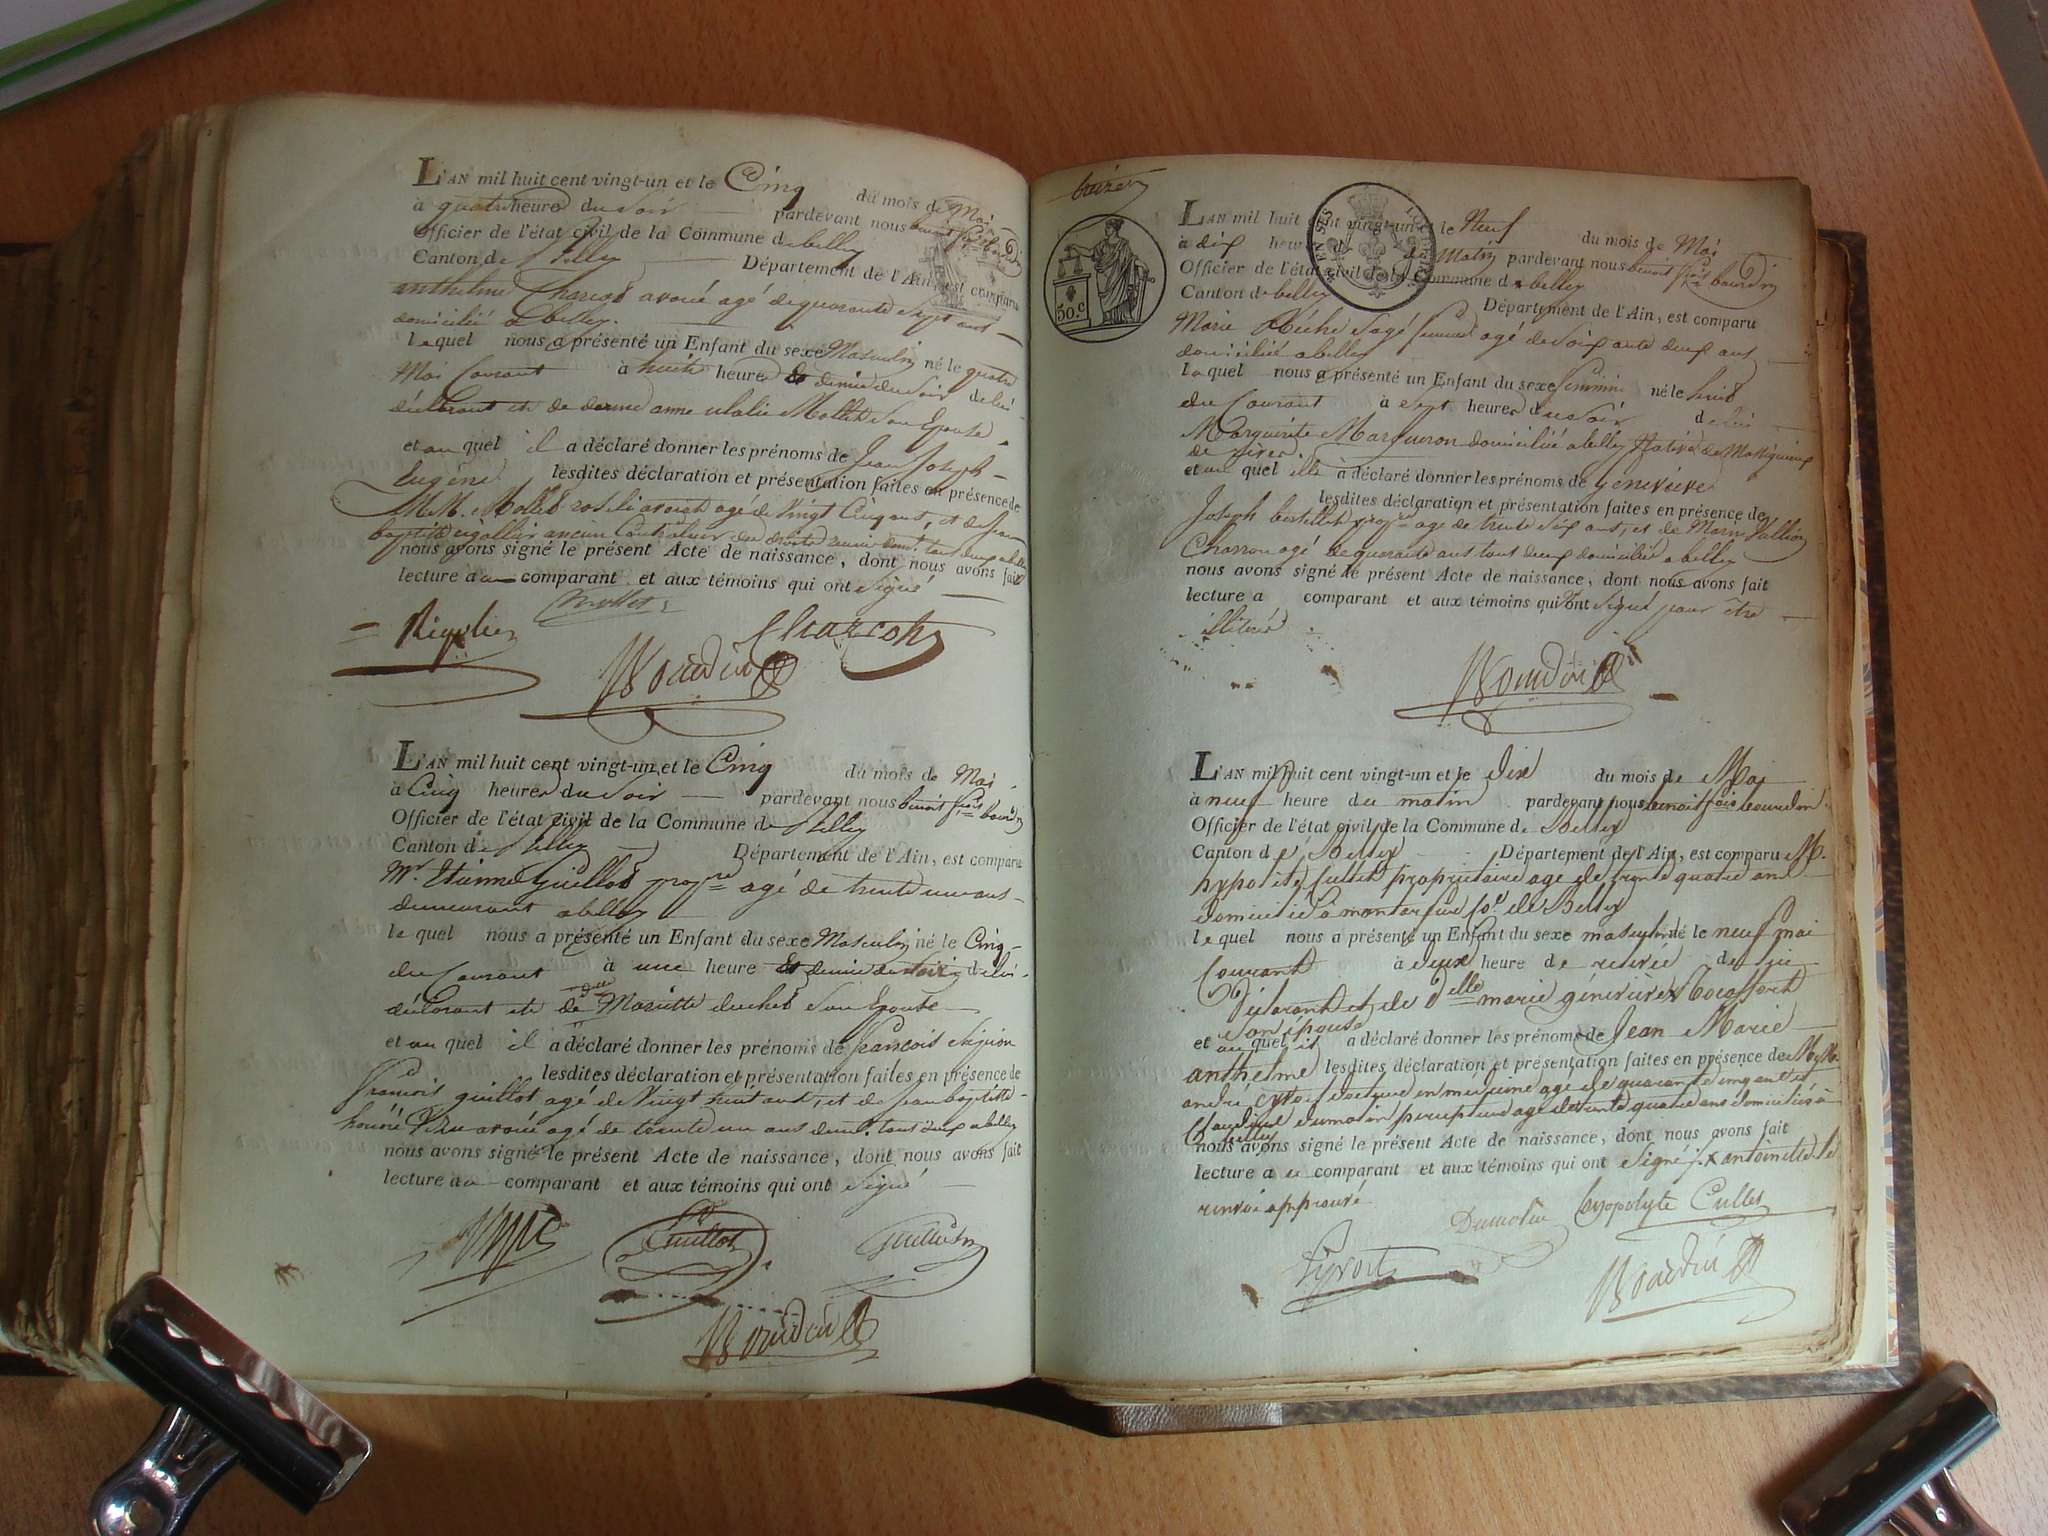 L'AN mil huit cent vingt-un et le Cinq du mois de Mai
à quatre heures du soir pardevant nous benoit
Officier de l'état civil de la Commune de belley
Canton de Belley Département de l'Ain, est comparu
anthelme avoué agé de quarante sept ans
domicilié a belley.
lequel nous a présenté un Enfant du sexe Masculin né le quatre
Mai Courant à huit heures et demie du soir de lui
déclarant et de dame anne Mollet son Epouse
et au quel il a déclaré donner les prénoms de Jean Joseph
Eugène lesdites déclaration et présentation faites en présence de
M.M. Mollet agé de Vingt Cinq ans, et de Jean
baptiste ancien tous deux a belley
nous avons signé le présent Acte de naissance, dont nous avons fait
lecture au comparant et aux témoins qui ont signé
Mollet
Charcot
Bourdin
L'AN mil huit cent vingt-un et le Cinq du mois de Mai
à Cinq heures du soir pardevant nous benoit fois bourdin
Officier de l'état civil de la Commune de Belley
Canton de Belley Département de l'Ain, est comparu
Mr Etienne Guillot propre agé de trente un ans
demeurant a belley
lequel nous a présenté un Enfant du sexe Masculin né le Cinq
du Courant à une heure et demie du soir de lui
déclarant et de Mariette son Epouse
et au quel il a déclaré donner les prénoms de françois
lesdites déclaration et présentation faites en présence de
françois guillot agé de Vingt huit ans, et de Jean baptiste
honoré avoué agé de trente un ans dem. tous deux a belley
nous avons signé le présent Acte de naissance, dont nous avons fait
lecture au comparant et aux témoins qui ont signé
Guillot
Bourdin
treize
50.c
L'AN mil huit cent vingt-un et le Neuf du mois de Mai
à dix heures du Matin pardevant nous benoit fois bourdin
Officier de l'état civil de la Commune de belley
Canton de belley Département de l'Ain, est comparu
Marie sage femme agé de soixante deux ans
domiciliée a belley
laquel nous a présenté un Enfant du sexe feminin né le huit
du Courant à sept heures du soir de
Marguerite Marqueron domiciliée a belley Native de Massignieu
de rives.
et au quel elle a déclaré donner les prénoms de Geneviève
lesdites déclaration et présentation faites en présence de
Joseph propre agé de trente six ans, et de Marin
Charron agé de quarante ans tous deux domiciliés a belley
nous avons signé le présent Acte de naissance, dont nous avons fait
lecture a comparant et aux témoins qui ont signé pour être
illitéré
Bourdin
L'AN mil huit cent vingt-un et le dix du mois de Mai
à neuf heure du matin pardevant nous benoit fois bourdin
Officier de l'état civil de la Commune de Belley
Canton de Belley Département de l'Ain, est comparu M.
hypolite Cullet propriétaire agé de trente quatre ans
domicilié à montarfier de Belley
lequel nous a présenté un Enfant du sexe masculin né le neuf mai
Courant à deux heure de relevée de lui
déclarant et de delle marie geneviève x
son épouse
et au quel il a déclaré donner les prénoms de Jean Marie
anthelme lesdites déclaration et présentation faites en présence de M.M.
andré docteur en médecine agé de quarante cinq ans et
Claudine dumolin percepteur agé de trente quatre ans domiciliés à
Belley
nous avons signé le présent Acte de naissance, dont nous avons fait
lecture a ce comparant et aux témoins qui ont signé x antoinette le
renvoi approuvé
Dumolin hypolyte Cullet
Bourdin